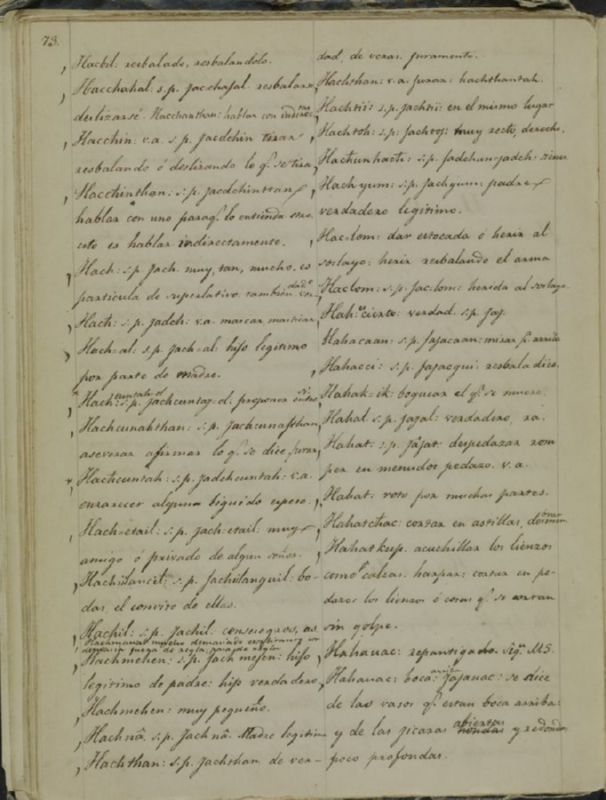 73.
Hacbil: resbalado, resbalandolo.
Hacchahal. s.p. jacchajal. resbalarse
deslizarse. Hacchanthan: hablar con
Hacchin: v.a. s.p. jacdchin tirar
resbalando ó deslizando lo q.e se tira
Hacchinthan: s.p. jacdchinttan
hablar con uno paraq.e lo entienda otro
esto es hablar indirectamente.
Hach: s.p. jach. muy, tan, mucho, es
particula de superlativo tambien
Hach: s.p. jadch: v.a. mascar
Hach-al: s.p. jach-al: hijo legitimo
por parte de madre.
Hach: s.p. jachcuntag-ol: proponer
Hachcunahthan: s.p. jachcunajthan
aseverar afirmar lo q.e se dice, jurar
Hachcuntah: s.p. jadchcuntah: v.a.
enrarecer alguna liquido espeso.
Hach-etail: s.p. jach-etail: muy
amigo ó privado de algun señor.
bo-
das, el convite de ellas.
Hachil: s.p. jachil. consuegros, as
Hachmehen: s.p. jach mejen: hijo
legitimo de padre: hijo verdadero
Hachmehen: muy pequeño.
Hachnâ. s.p. jachnâ. Madre legitima
Hachthan: s.p. jachthan de ver-
dad, de veras. juramento.
Hachthan: v.a. jurar: hachthantah.
Hachtii: s.p. jachtii: en el mismo lugar
Hachtoh: s.p: jachtoj: muy recto, derecho.
Hachunhach: s.p. jadchunjadch.
Hachyum: s.p. jachyum: padre
verdadero legitimo.
Haclom: dar estocada ó herir al
soslayo: herir resbalando el arma
Haclom: s.p. jaclom: herida al soslayo
Hah: cierto: verdad. s.p. jaj.
Hahacaan: s.p. jajacaan: mirar p.a arriba
Hahacci: s.p. jajacqui: resbaladizo.
Hahak-ik: boquear el q.e se muere.
Hahal s.p. jajal: verdadero, ra.
Hahat: s.p. jájat: despedazar rom
per en menudos pedazo. v.a.
Hahat. roto por muchas partes.
Hahatchac: cortar en astillas,
Hahatkup. acuchillar los lienzos
como calzas. harpar: cortar en pe-
dazos los lienzos ó cosas q.e se cortan
sin golpe.
Hahauac: repantigado. Sig.n MS.
Hahauac: boca arriba jajauac: se dice
de los vasos q.e estan boca arriba:
y de las jicaras abiertas hondas y redondas
poco profundas.